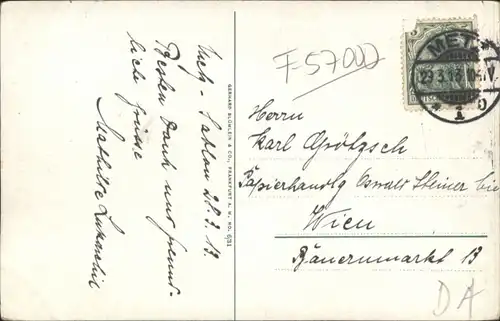 Metz - Sablon 28.3.13
Besten Dank und freund-
liche Grüsse
Mathilde
GERHARD BLÜMLEIN & CO., FRANKFURT A. M. NO. 6/31
F-57000
METZ
29.3.13. 10-11V.
* 1 D
Herrn
Karl Grötzsch
Papierhandlg Oswalt Steiner bis
Wien
Bauernmarkt 13
DA